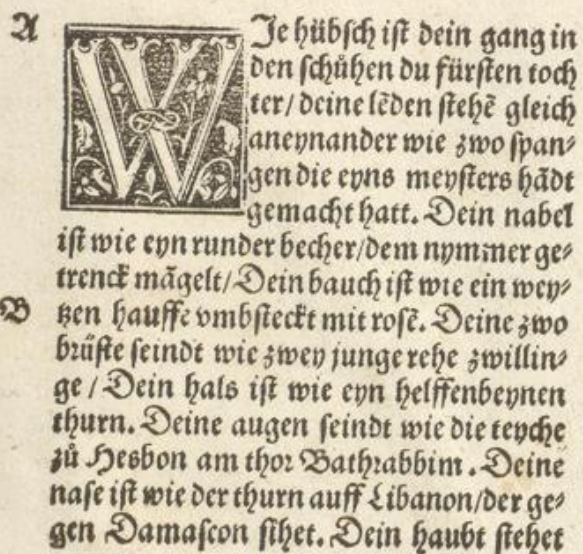 A
WJe hübſch iſt dein gang in
den ſchůhen du fürſten toch
ter/ deine lēden ſtehē gleich
aneynander wie zwo ſpan⸗
gen die eyns meyſters hādt
gemacht hatt. Dein nabel
iſt wie eyn runder becher/dem nymmer ge⸗
trenck māgelt/ Dein bauch iſt wie ein wey⸗
B
tzen hauffe vmbſteckt mit roſē. Deine zwo
brüſte ſeindt wie zwey junge rehe zwillin⸗
ge / Dein hals iſt wie eyn helffenbeynen
thurn. Deine augen ſeindt wie die teyche
zů Hesbon am thor Bathrabbim. Deine
naſe iſt wie der thurn auff Libanon/der ge⸗
gen Damaſcon ſihet. Dein haubt ſtehet